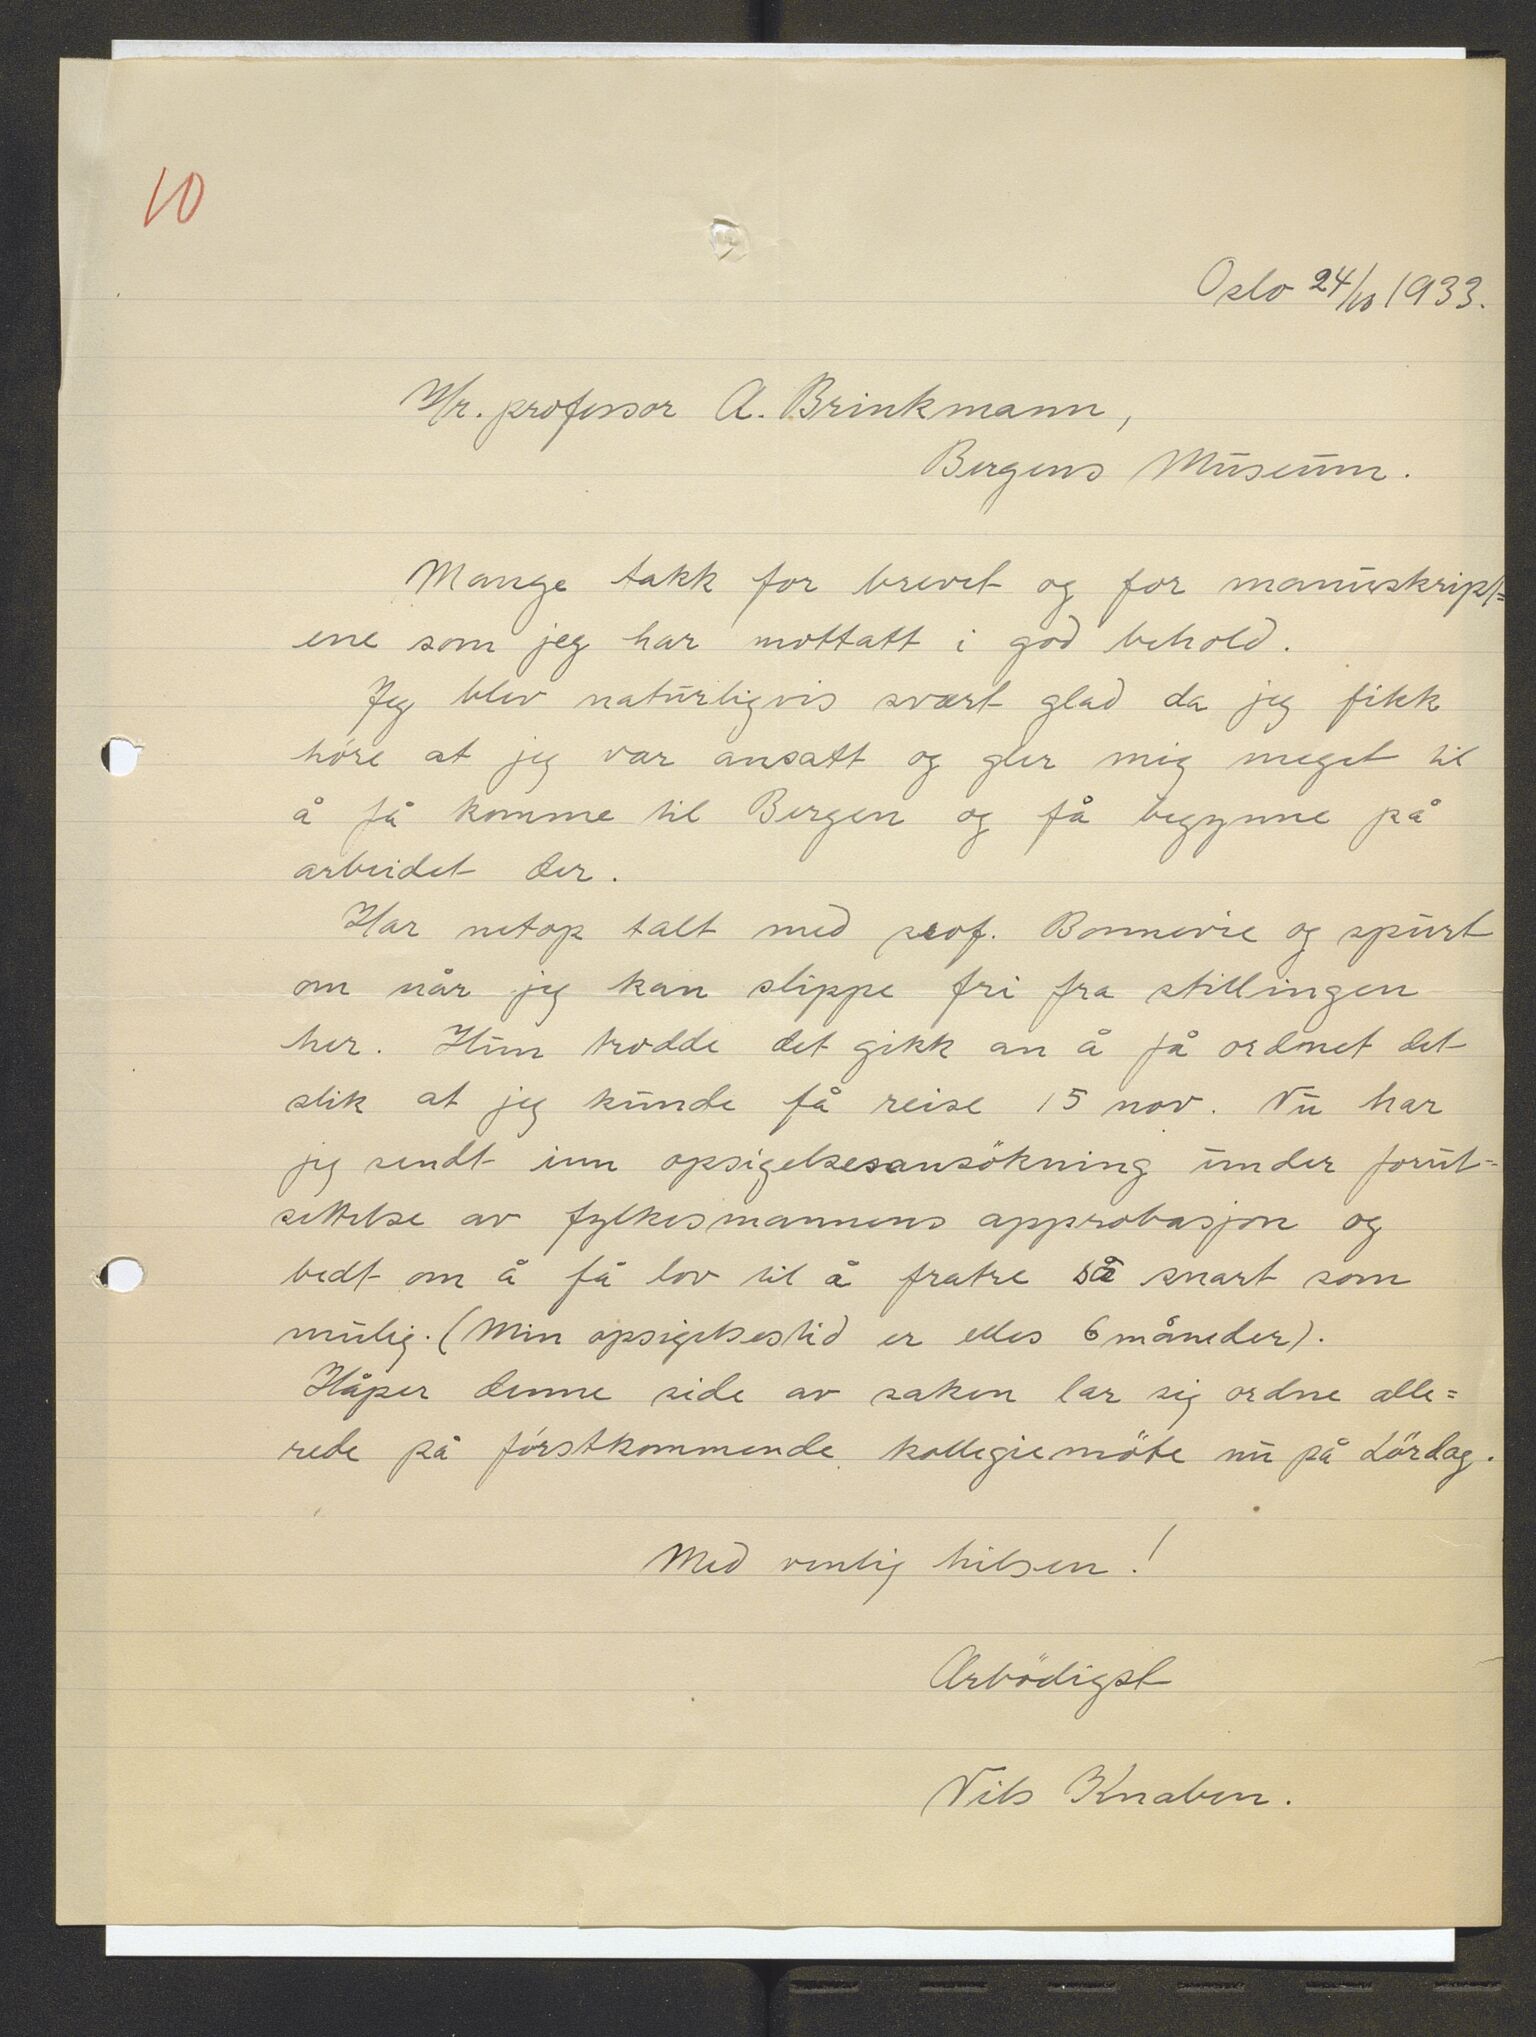 10
Oslo 24/10 1933.
Hr. professor A. Brinkmann,
Bergens Museum.
Mange takk for brevet og for manuskript=
ene som jeg har mottatt i god behold.
Jeg blev naturligvis svært glad da jeg fikk
höre at jeg var ansatt og gler mig meget til
å få komme til Bergen og få begynne på
arbeidet der.
Har netop talt med prof. Bonnevie og spurt
om når jeg kan slippe fri fra stillingen
her. Hun trodde det gikk an å få ordnet det
slik at jeg kunde få reise 15 nov. Nu har
jeg sendt inn opsigelsesansökning under forut=
settelse av fylkesmannens approbasjon og
bedt om å få lov til å fratre så snart som
mulig. (Min opsigelsestid er elles 6 måneder).
Håper denne side av saken lar sig ordne alle=
rede på förstkommende kollegiemöte nu på Lördag.
Med venlig hilsen!
Ærbödigst
Nils Knaben.